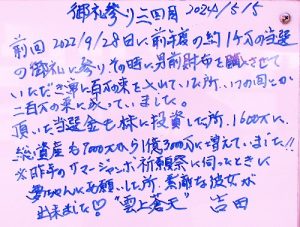 御礼参り二回目 2024/5/15
前回2022/9/28日に前年度の約1千万の当選
の御礼に参り、その時に男前財布を購入させて
いただき寧に百万の束を入れていた所、いつの間にか
二百万の束に成っていました。
頂いた当選金も株に投資した所、1600万に、
総資産も7000万から1億300万に増えていました!!
※昨年のサマージャンボ祈願祭に伺ったときに
夢ちゃんにお願いした所、素敵な彼女が
出来ました♡ "雲上蒼天" 吉田